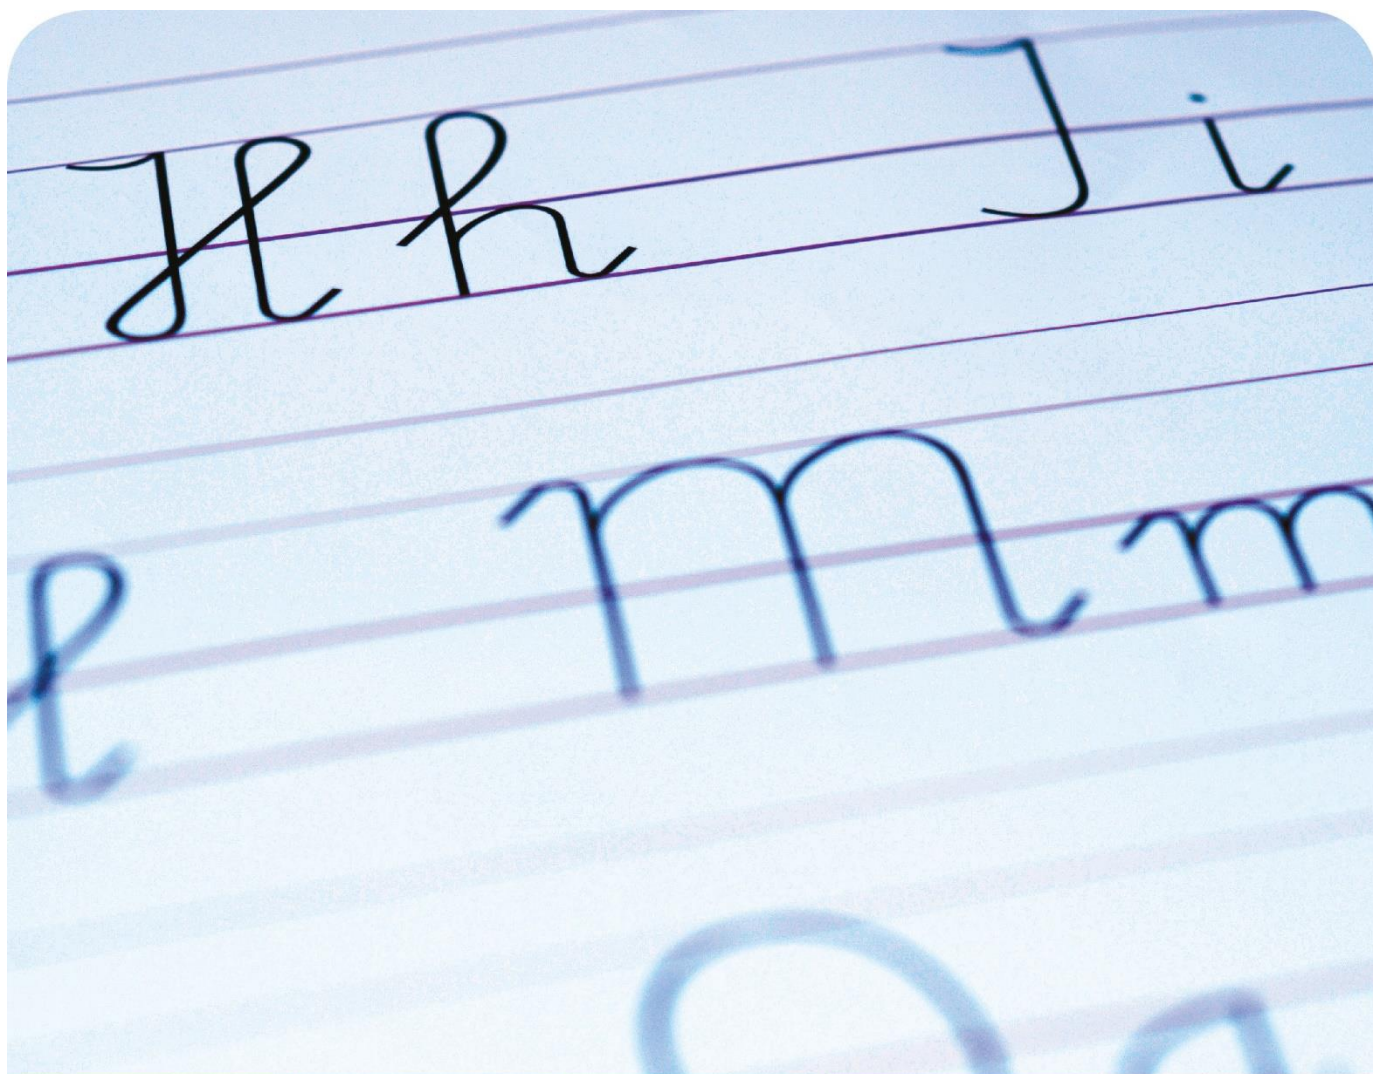 H h I i
l M m